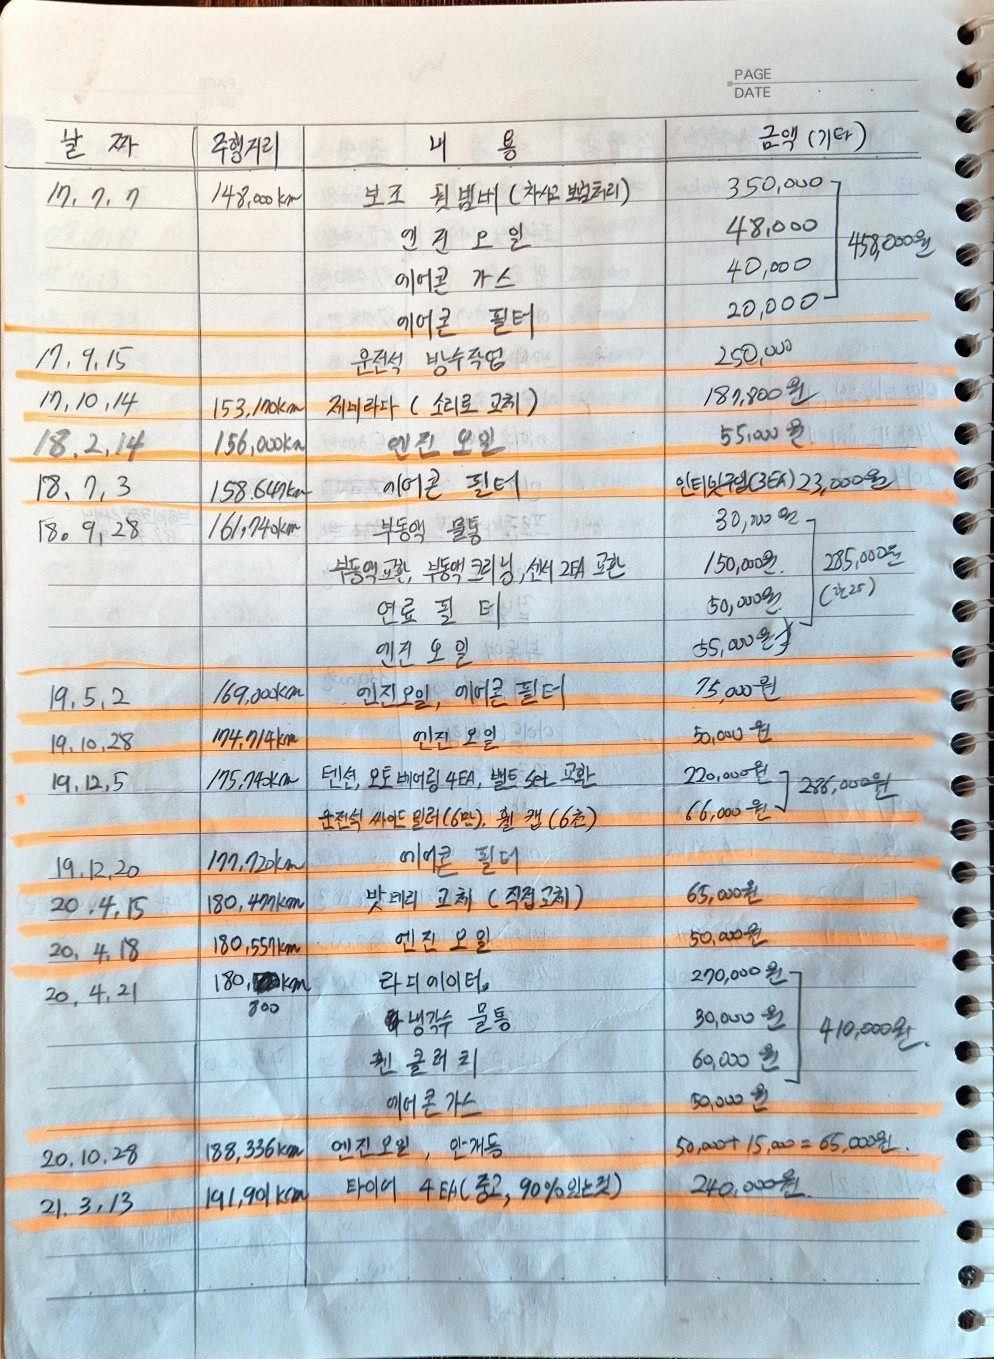 PAGE
DATE
날 짜 주행거리 내 용 금액 (기타)
17. 7. 7 148,000km 보조 뒷범버 (차사고 보험처리) 350,000
엔진 오일 48,000 458,000원
에어콘 가스 40,000
에어콘 필터 20,000
17. 9. 15 운전석 방수작업 250,000
17. 10. 14 153,170km 제네라다 ( 소리로 교체 ) 187,800원
18. 2. 14 156,000km 엔진 오일 55,000원
18. 7. 3 158.647km 에어콘 필터 인터넷구입(3EA) 23,000원
18. 9. 28 161,740km 부동액 물통 30,000원
부동액교환, 부동액크리닝, 센서 2EA 교환 150,000원. 285,000원
연료 필터 50,000원
엔진 오일 55,000원
19. 5. 2 169,000km 엔진오일, 에어콘 필터 75,000원
19. 10. 28 174,714km 엔진 오일 50,000원
19. 12. 5 175,740km 텐션, 오토 베어링 4EA, 벨트 Set 교환 220,000원 286,000원
운전석 싸이드 밀러(6만), 휠 캡 (6천) 66,000원
19. 12. 20 177,720km 에어콘 필터
20. 4. 15 180,477km 밧데리 교체 ( 직접교체 ) 65,000원
20. 4. 18 180,557km 엔진 오일 50,000원
20. 4. 21 180, km 라디에이터. 270,000원
800 냉각수 물통 30,000원 410,000원.
휀 클러치 60,000원
에어콘가스 50,000원
20. 10. 28 188,336km 엔진오일, 안개등 50,000 + 15,000 = 65,000원.
21. 3. 13 191,901km 타이어 4EA (중고, 90% 있는것) 240,000원.